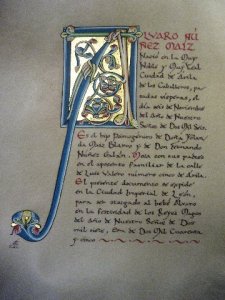 ALVARO NÚ
ÑEZ MAÍZ
Nació en la Muy
Noble y Muy Leal
Ciudad de Ávila
de los Caballeros,
pasadas vísperas, el
día seis de Noviembre
del año de Nuestro
Señor de Dos Mil Seis.
Es el hijo Primogénito de Doña Yolan
da Maíz Blanco y de Don Fernando
Núñez Galán. Mora con sus padres
en el aposento familiar de la calle
de Luis Valero número cinco de Ávila.
El presente documento se expide
en la Ciudad Imperial de León,
para ser otorgado al bebé Álvaro
en la Festividad de los Reyes Magos
del año de Nuestro Señor de Dos
mil siete, Era de Dos Mil Cuarenta
y cinco